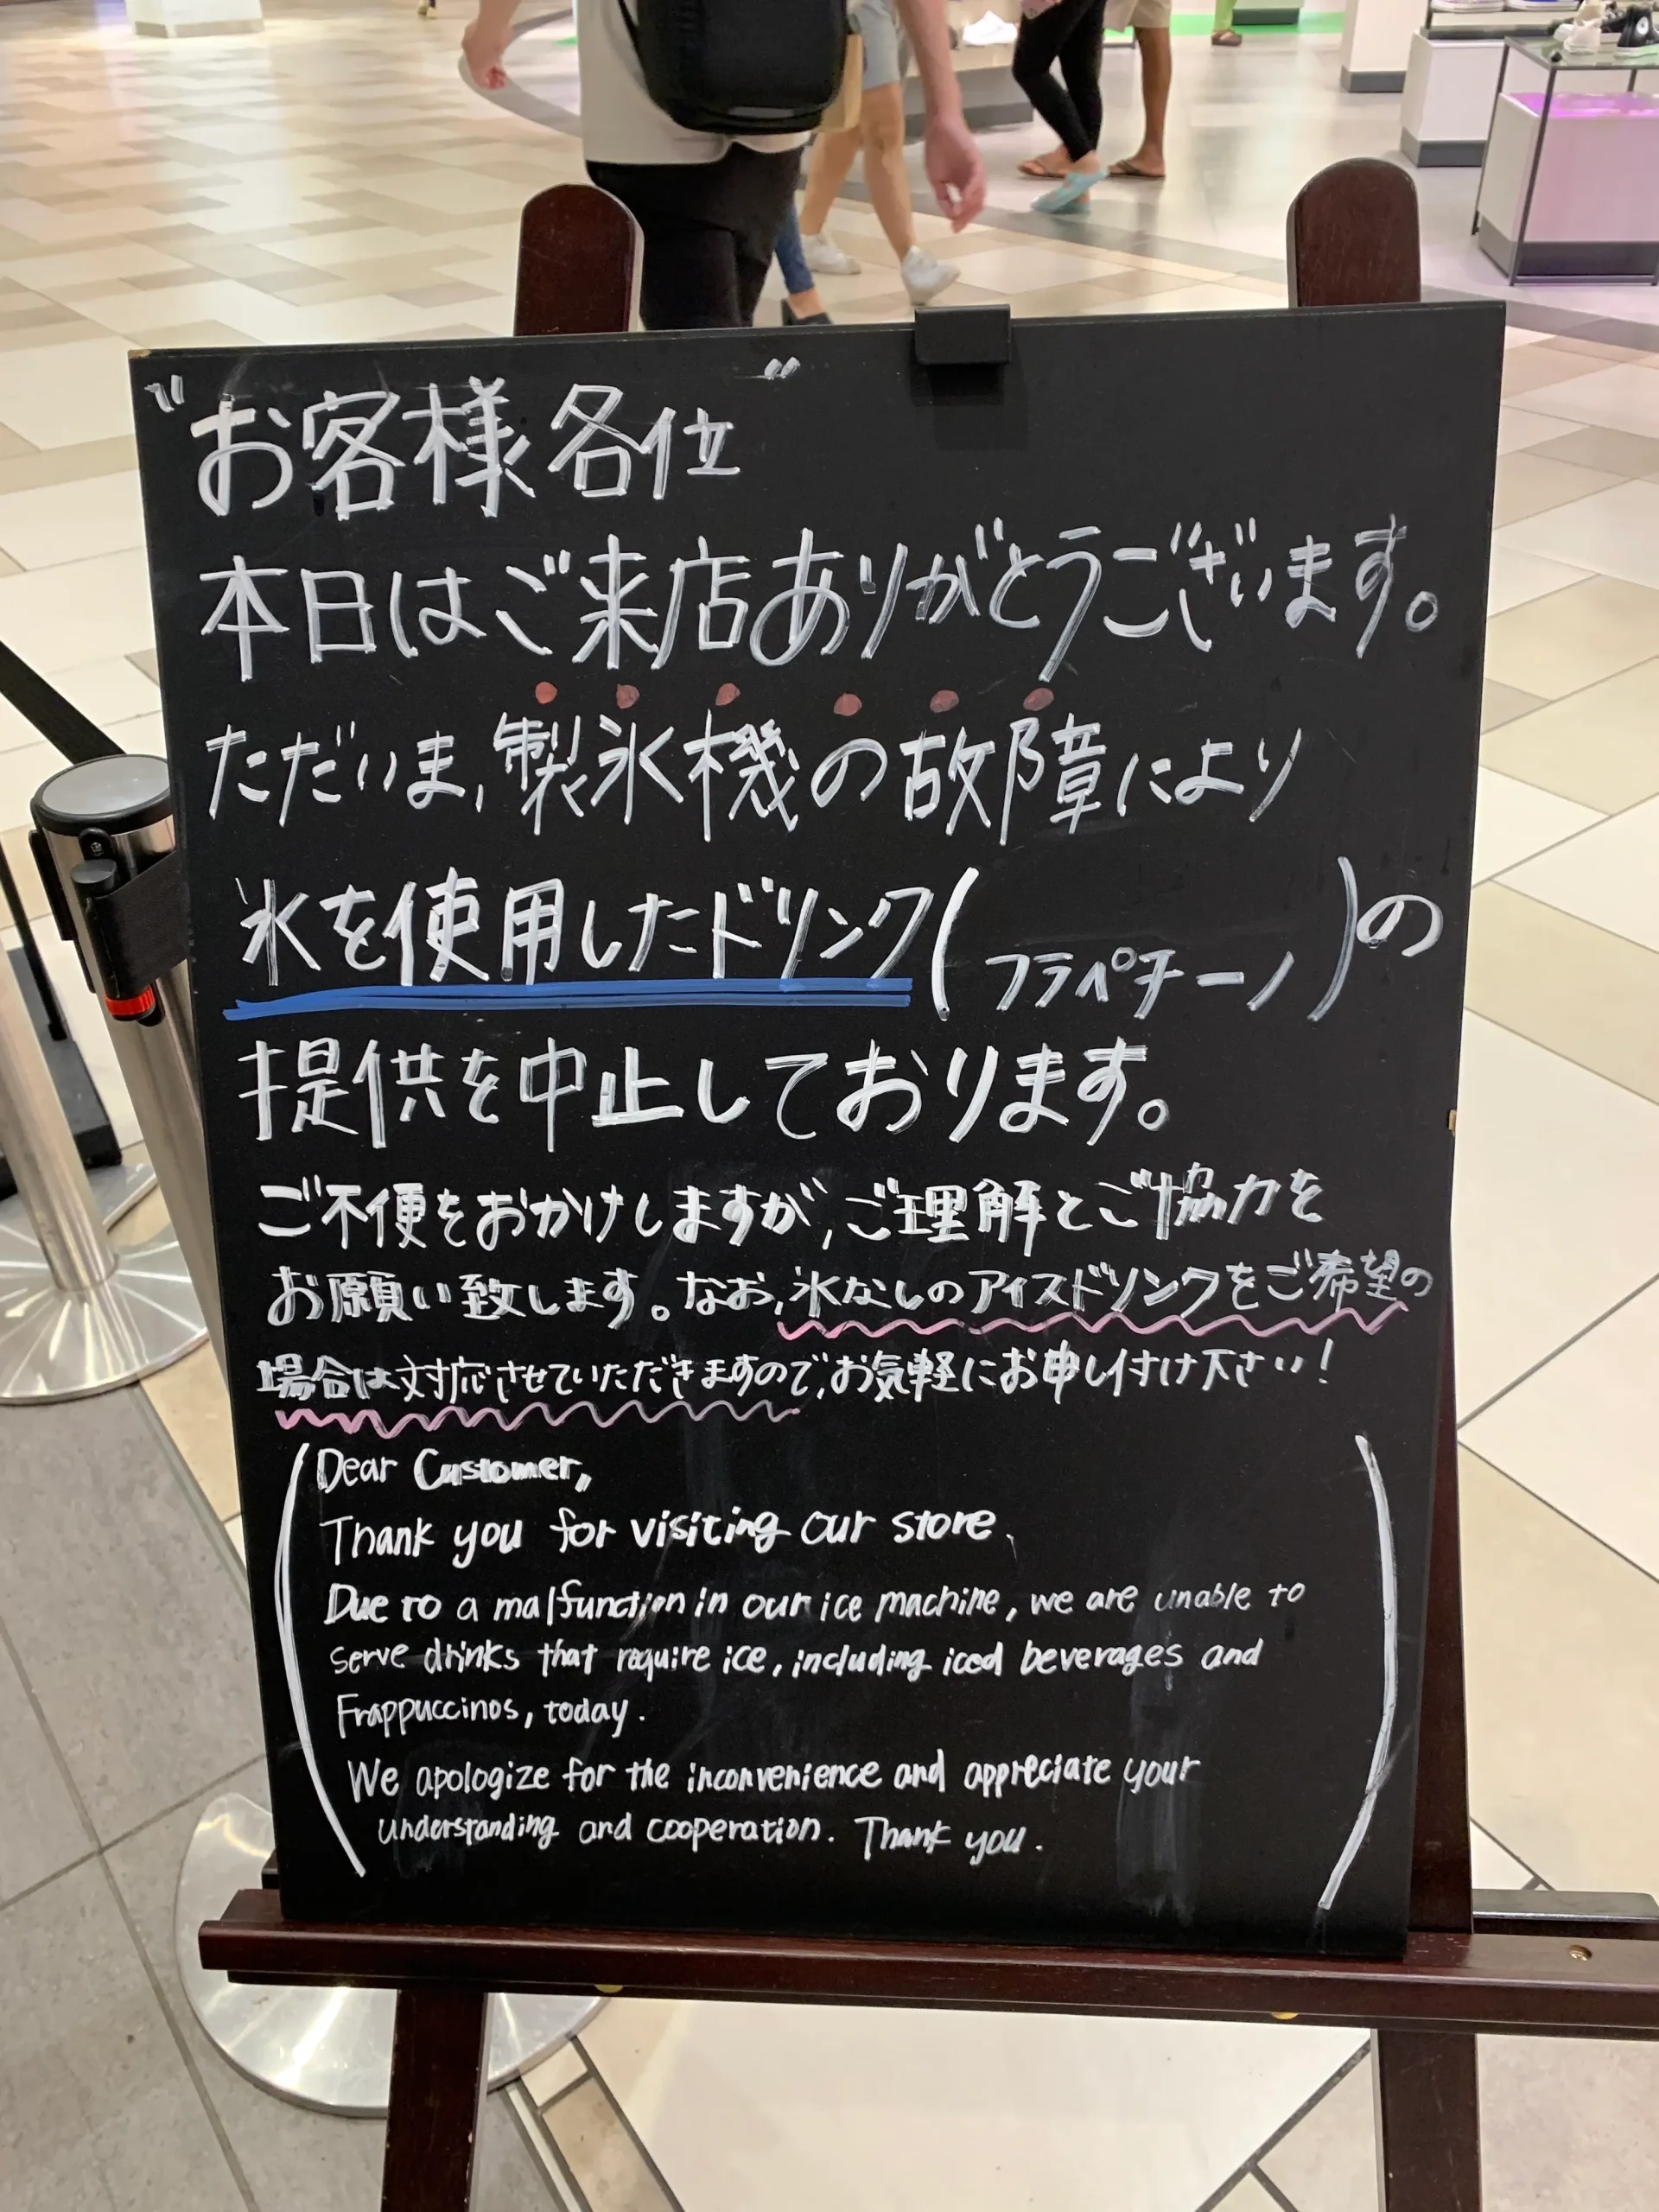 "お客様各位"
本日はご来店ありがとうございます。
ただいま、製氷機の故障により
氷を使用したドリンク(フラペチーノ)の
提供を中止しております。
ご不便をおかけしますが、ご理解とご協力を
お願い致します。なお、氷なしのアイスドリンクをご希望の
場合は対応させていただきますので、お気軽にお申し付け下さい!
(Dear Customer,
Thank you for visiting our store.
Due to a malfunction in our ice machine, we are unable to
serve drinks that require ice, including iced beverages and
Frappuccinos, today.
We apologize for the inconvenience and appreciate your
understanding and cooperation. Thank you.)